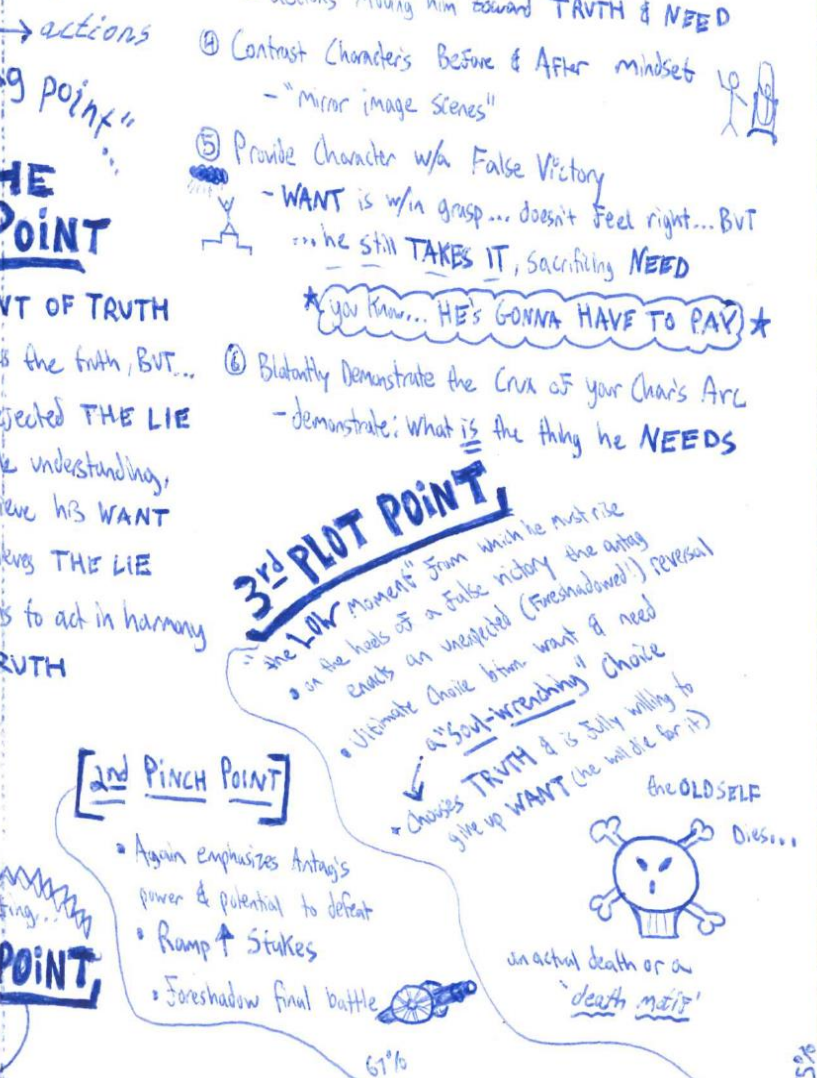 → actions
g point"
HE
POINT
NT OF TRUTH
s the truth, BUT...
ejected THE LIE
le understanding,
ieve his WANT
ieves THE LIE
s to act in harmony
RUTH
toward TRUTH & NEED
④ Contrast Character's Before & After mindset
- "mirror image scenes"
⑤ Provide Character w/a False Victory
- WANT is w/in grasp... doesn't feel right... BUT
...he still TAKES IT, sacrificing NEED
★ you know... HE'S GONNA HAVE TO PAY ★
⑥ Blatantly Demonstrate the Crux of your Char's Arc
- demonstrate: What is the thing he NEEDS
3rd PLOT POINT
"the LOW moment" from which he must rise
• on the heels of a false victory the antag
enacts an unexpected (foreshadowed!) reversal
• Ultimate Choice btwn. want & need
a "Soul-wrenching" choice
• chooses TRUTH & is fully willing to
give up WANT (he will die for it)
the OLD SELF
Dies...
an actual death or a
'death motif'
[2nd PINCH POINT]
• Again emphasizes Antag's
power & potential to defeat
• Ramp ↑ Stakes
• Foreshadow final battle
67%
ting...
POINT
5%